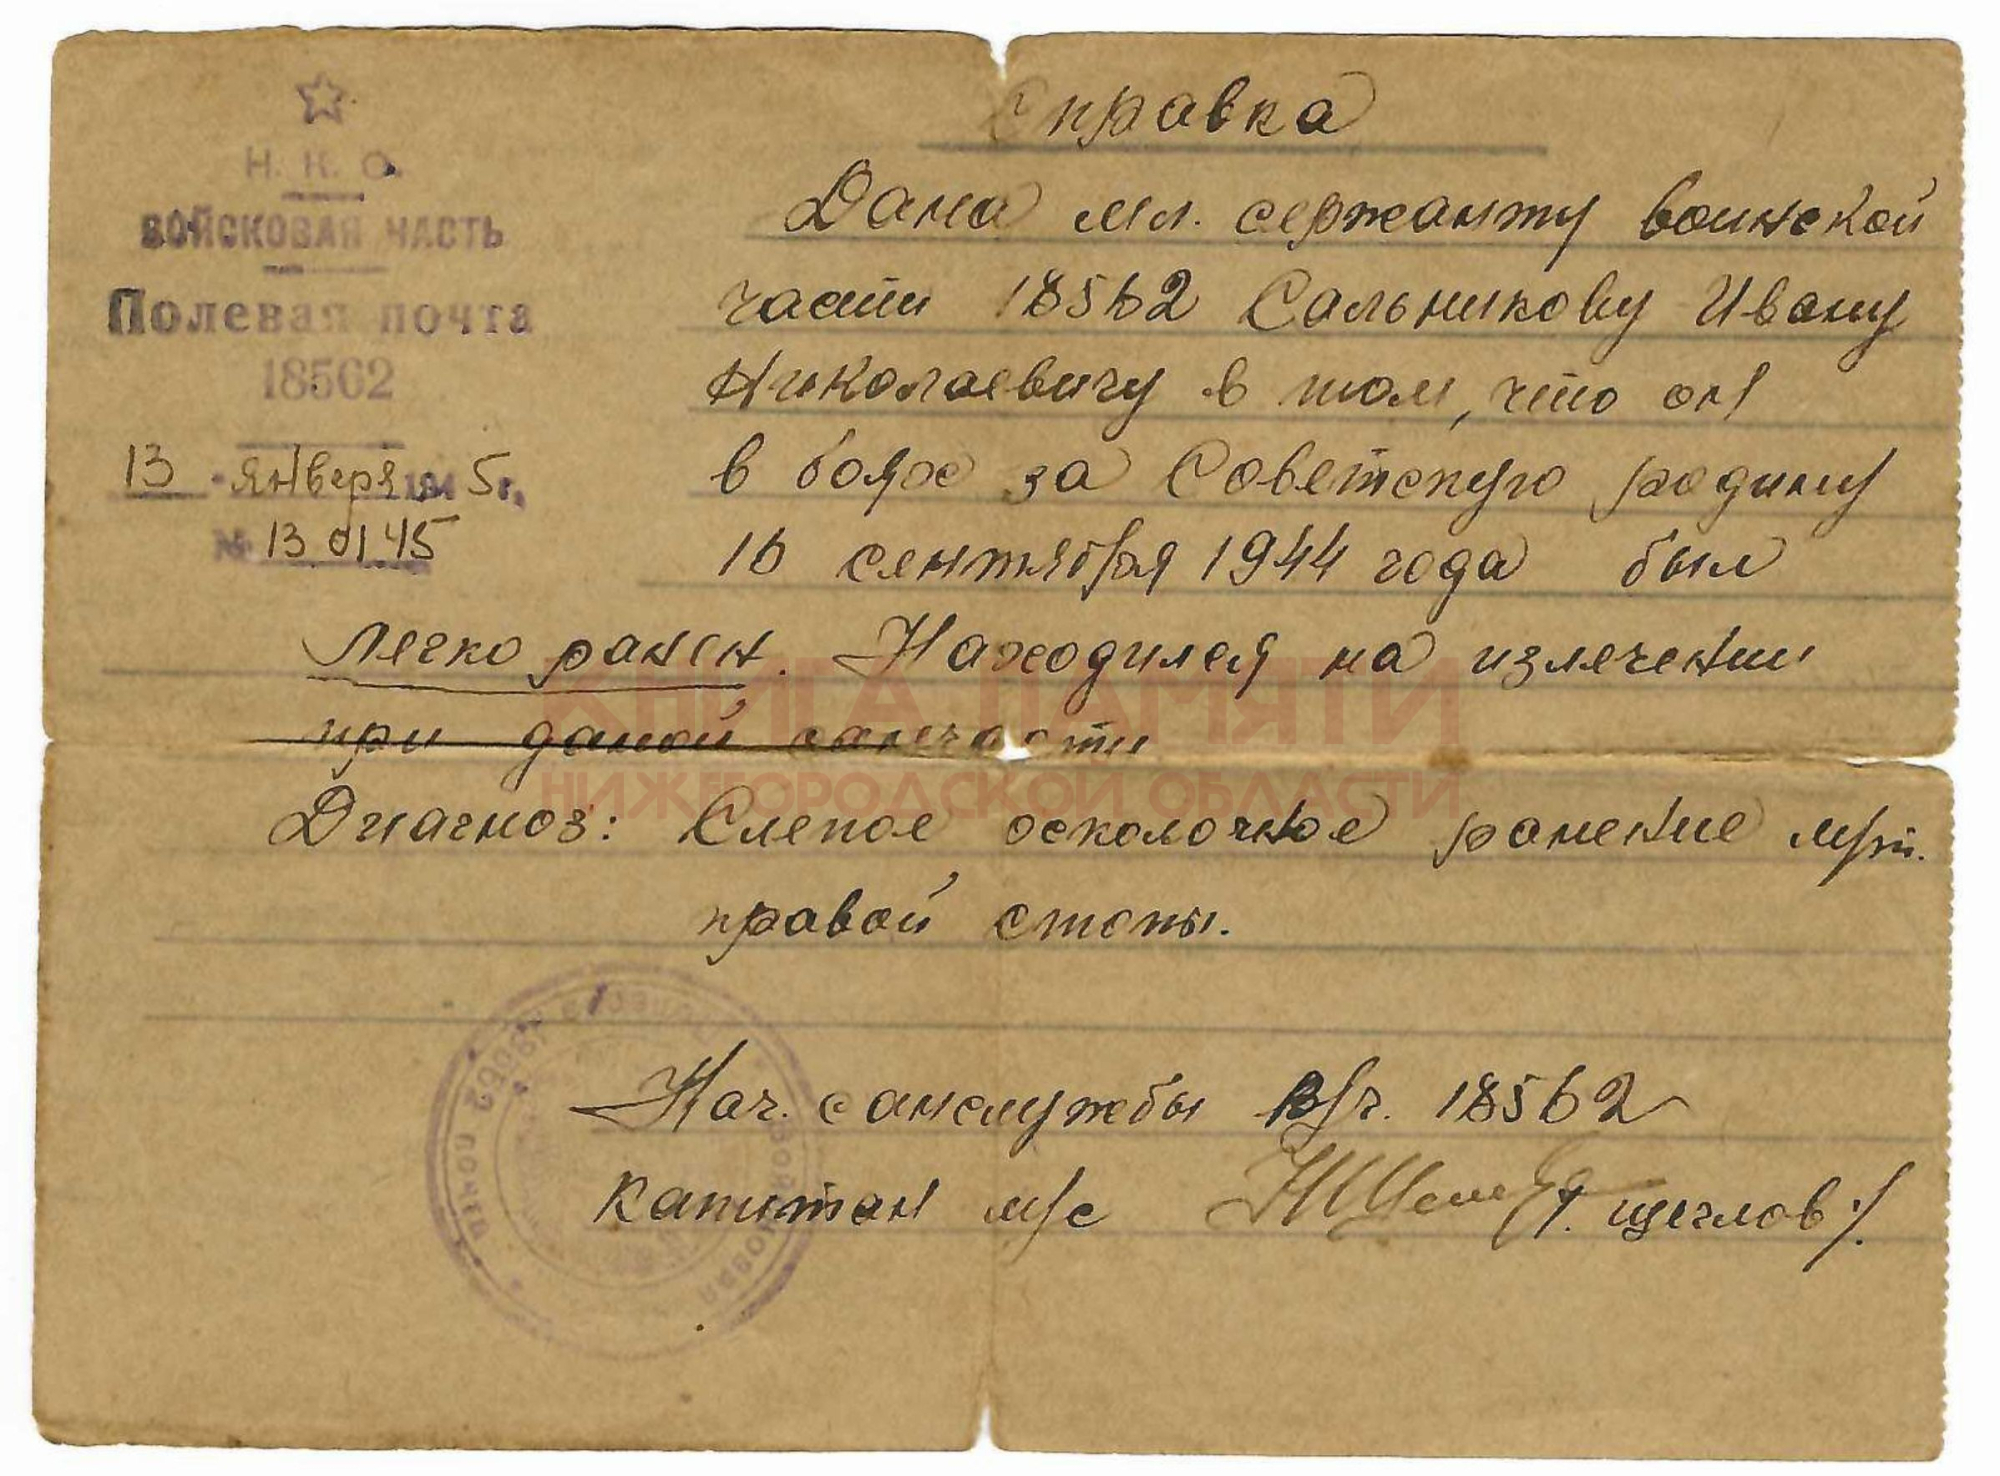 Н. К. О.
ВОЙСКОВАЯ ЧАСТЬ
Полевая почта
18562
13 января 1945 г.
№ 13 01 45
Справка
Дана мл. сержанту воинской
части 18562 Сальникову Ивану
Николаевичу в том, что он
в боях за Советскую родину
16 сентября 1944 года был
легко ранен. Находился на излечении
при даной санчасти
Диагноз: Слепое осколочное ранение м/т.
правой стопы.
Нач. санслужбы в/ч. 18562
Капитан м/с /. Щеглов ./.
КНИГА ПАМЯТИ
НИЖЕГОРОДСКОЙ ОБЛАСТИ